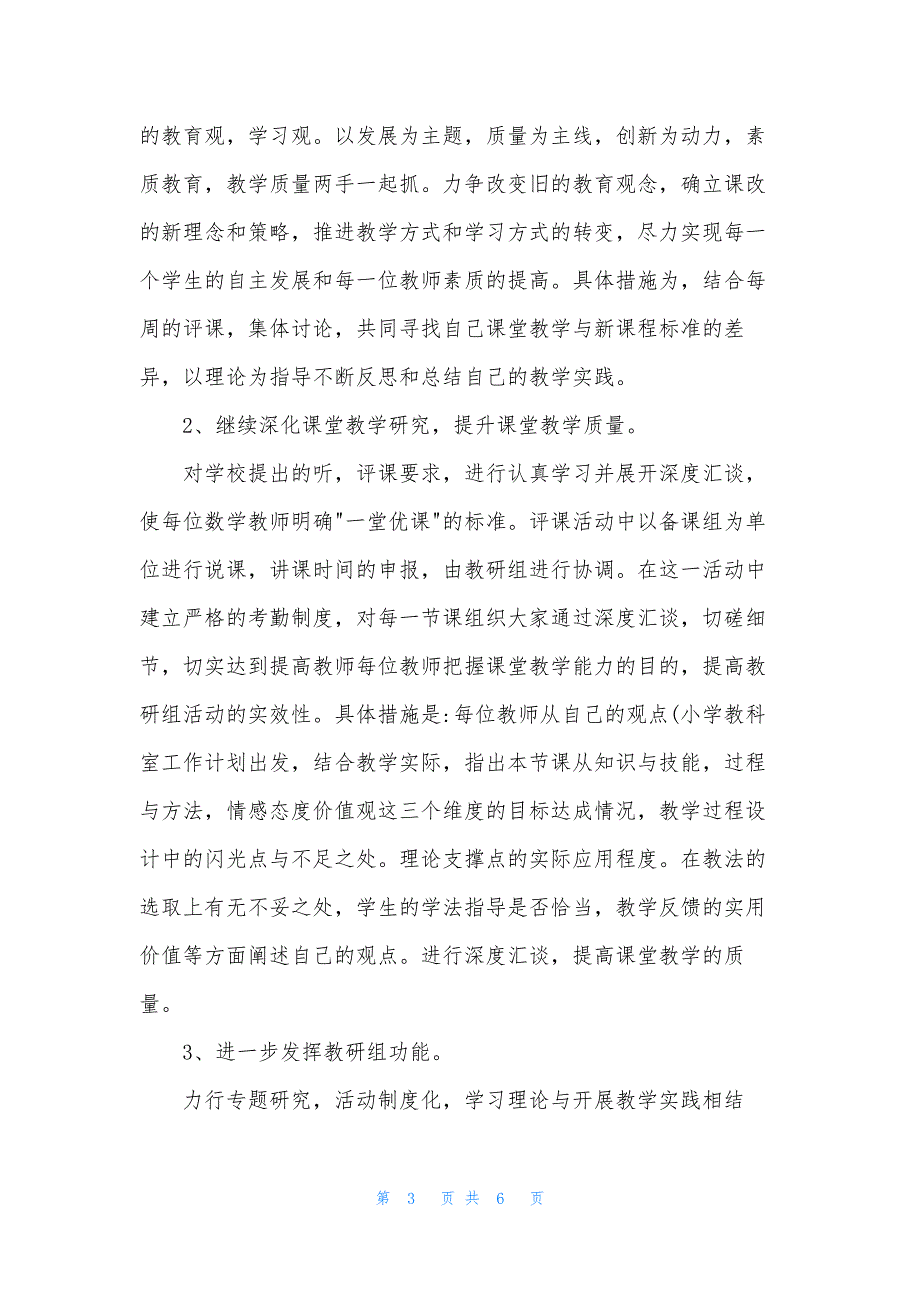 的教育观，学习观。以发展为主题，质量为主线，创新为动力，素
质教育，教学质量两手一起抓。力争改变旧的教育观念，确立课改
的新理念和策略，推进教学方式和学习方式的转变，尽力实现每一
个学生的自主发展和每一位教师素质的提高。具体措施为，结合每
周的评课，集体讨论，共同寻找自己课堂教学与新课程标准的差
异，以理论为指导不断反思和总结自己的教学实践。
2、继续深化课堂教学研究，提升课堂教学质量。
对学校提出的听，评课要求，进行认真学习并展开深度汇谈，
使每位数学教师明确"一堂优课"的标准。评课活动中以备课组为单
位进行说课，讲课时间的申报，由教研组进行协调。在这一活动中
建立严格的考勤制度，对每一节课组织大家通过深度汇谈，切磋细
节，切实达到提高教师每位教师把握课堂教学能力的目的，提高教
研组活动的实效性。具体措施是:每位教师从自己的观点(小学教科
室工作计划出发，结合教学实际，指出本节课从知识与技能，过程
与方法，情感态度价值观这三个维度的目标达成情况，教学过程设
计中的闪光点与不足之处。理论支撑点的实际应用程度。在教法的
选取上有无不妥之处，学生的学法指导是否恰当，教学反馈的实用
价值等方面阐述自己的观点。进行深度汇谈，提高课堂教学的质
量。
3、进一步发挥教研组功能。
力行专题研究，活动制度化，学习理论与开展教学实践相结
第 3 页 共 6 页